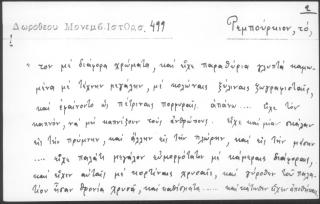 2
Δωροθέου Μονεμβ. Ιστορ. 499
Ρεμπούρκιον, τό,
" τον μὲ διάφορα χρώματα, καὶ εἶχε παραθύρια γλυπτὰ καμω-
μένα μὲ τέχνην μεγάλην, μὲ κολώναις ξύλιναις ζωγραφισταῖς,
καὶ ἐφαίνοντο ὡς πέτριναις πορφυραῖς. ἀπάνω.... εἶχε τὸν
καπνόν, νὰ μὴ καπνίζουν τοὺς ἀνθρώπους. εἶχε καὶ μία σκάλαν
εἰς τὴν πρύμνην, καὶ ἄλλην εἰς τὴν πλώρην, καὶ εἰς τὴν μέσην
.... εἶχε παλάτι μεγάλον εὐμορφότατον μὲ κάμεραις διάφοραις,
καὶ εἶχεν αὐταῖς μὲ κορτίναις χρυσαῖς, καὶ γύροθεν τοῦ παλα-
τίου ἦσαν θρονία χρυσᾶ, καὶ καθίσματα..... καὶ κάτωθεν εἶχεν